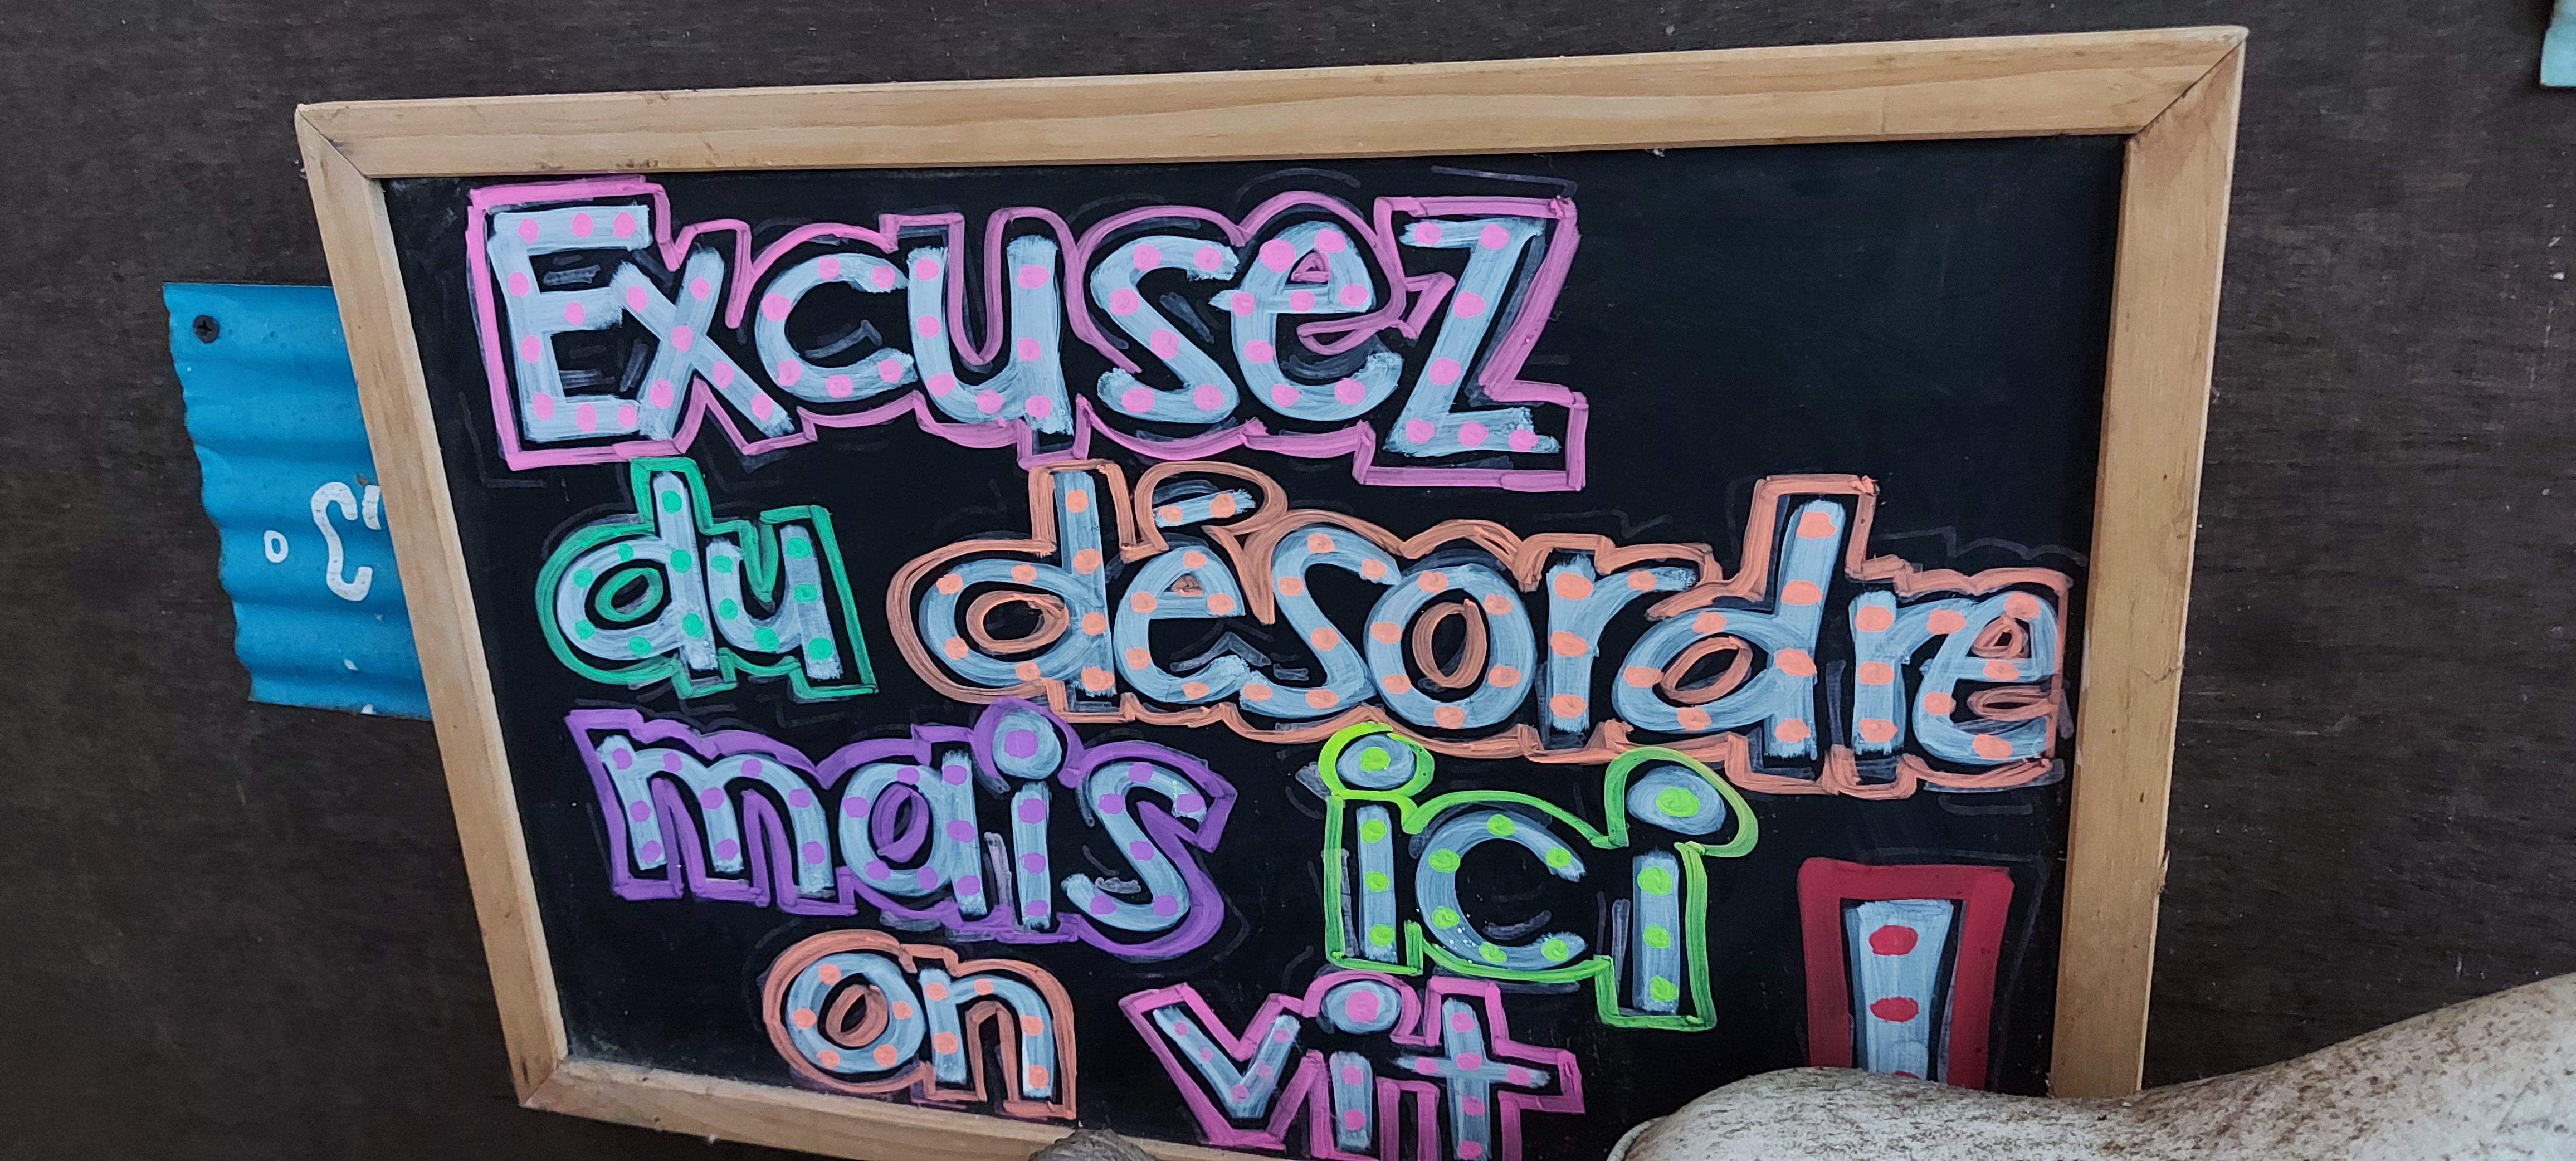 Excusez
du désordre
mais ici
on vit !